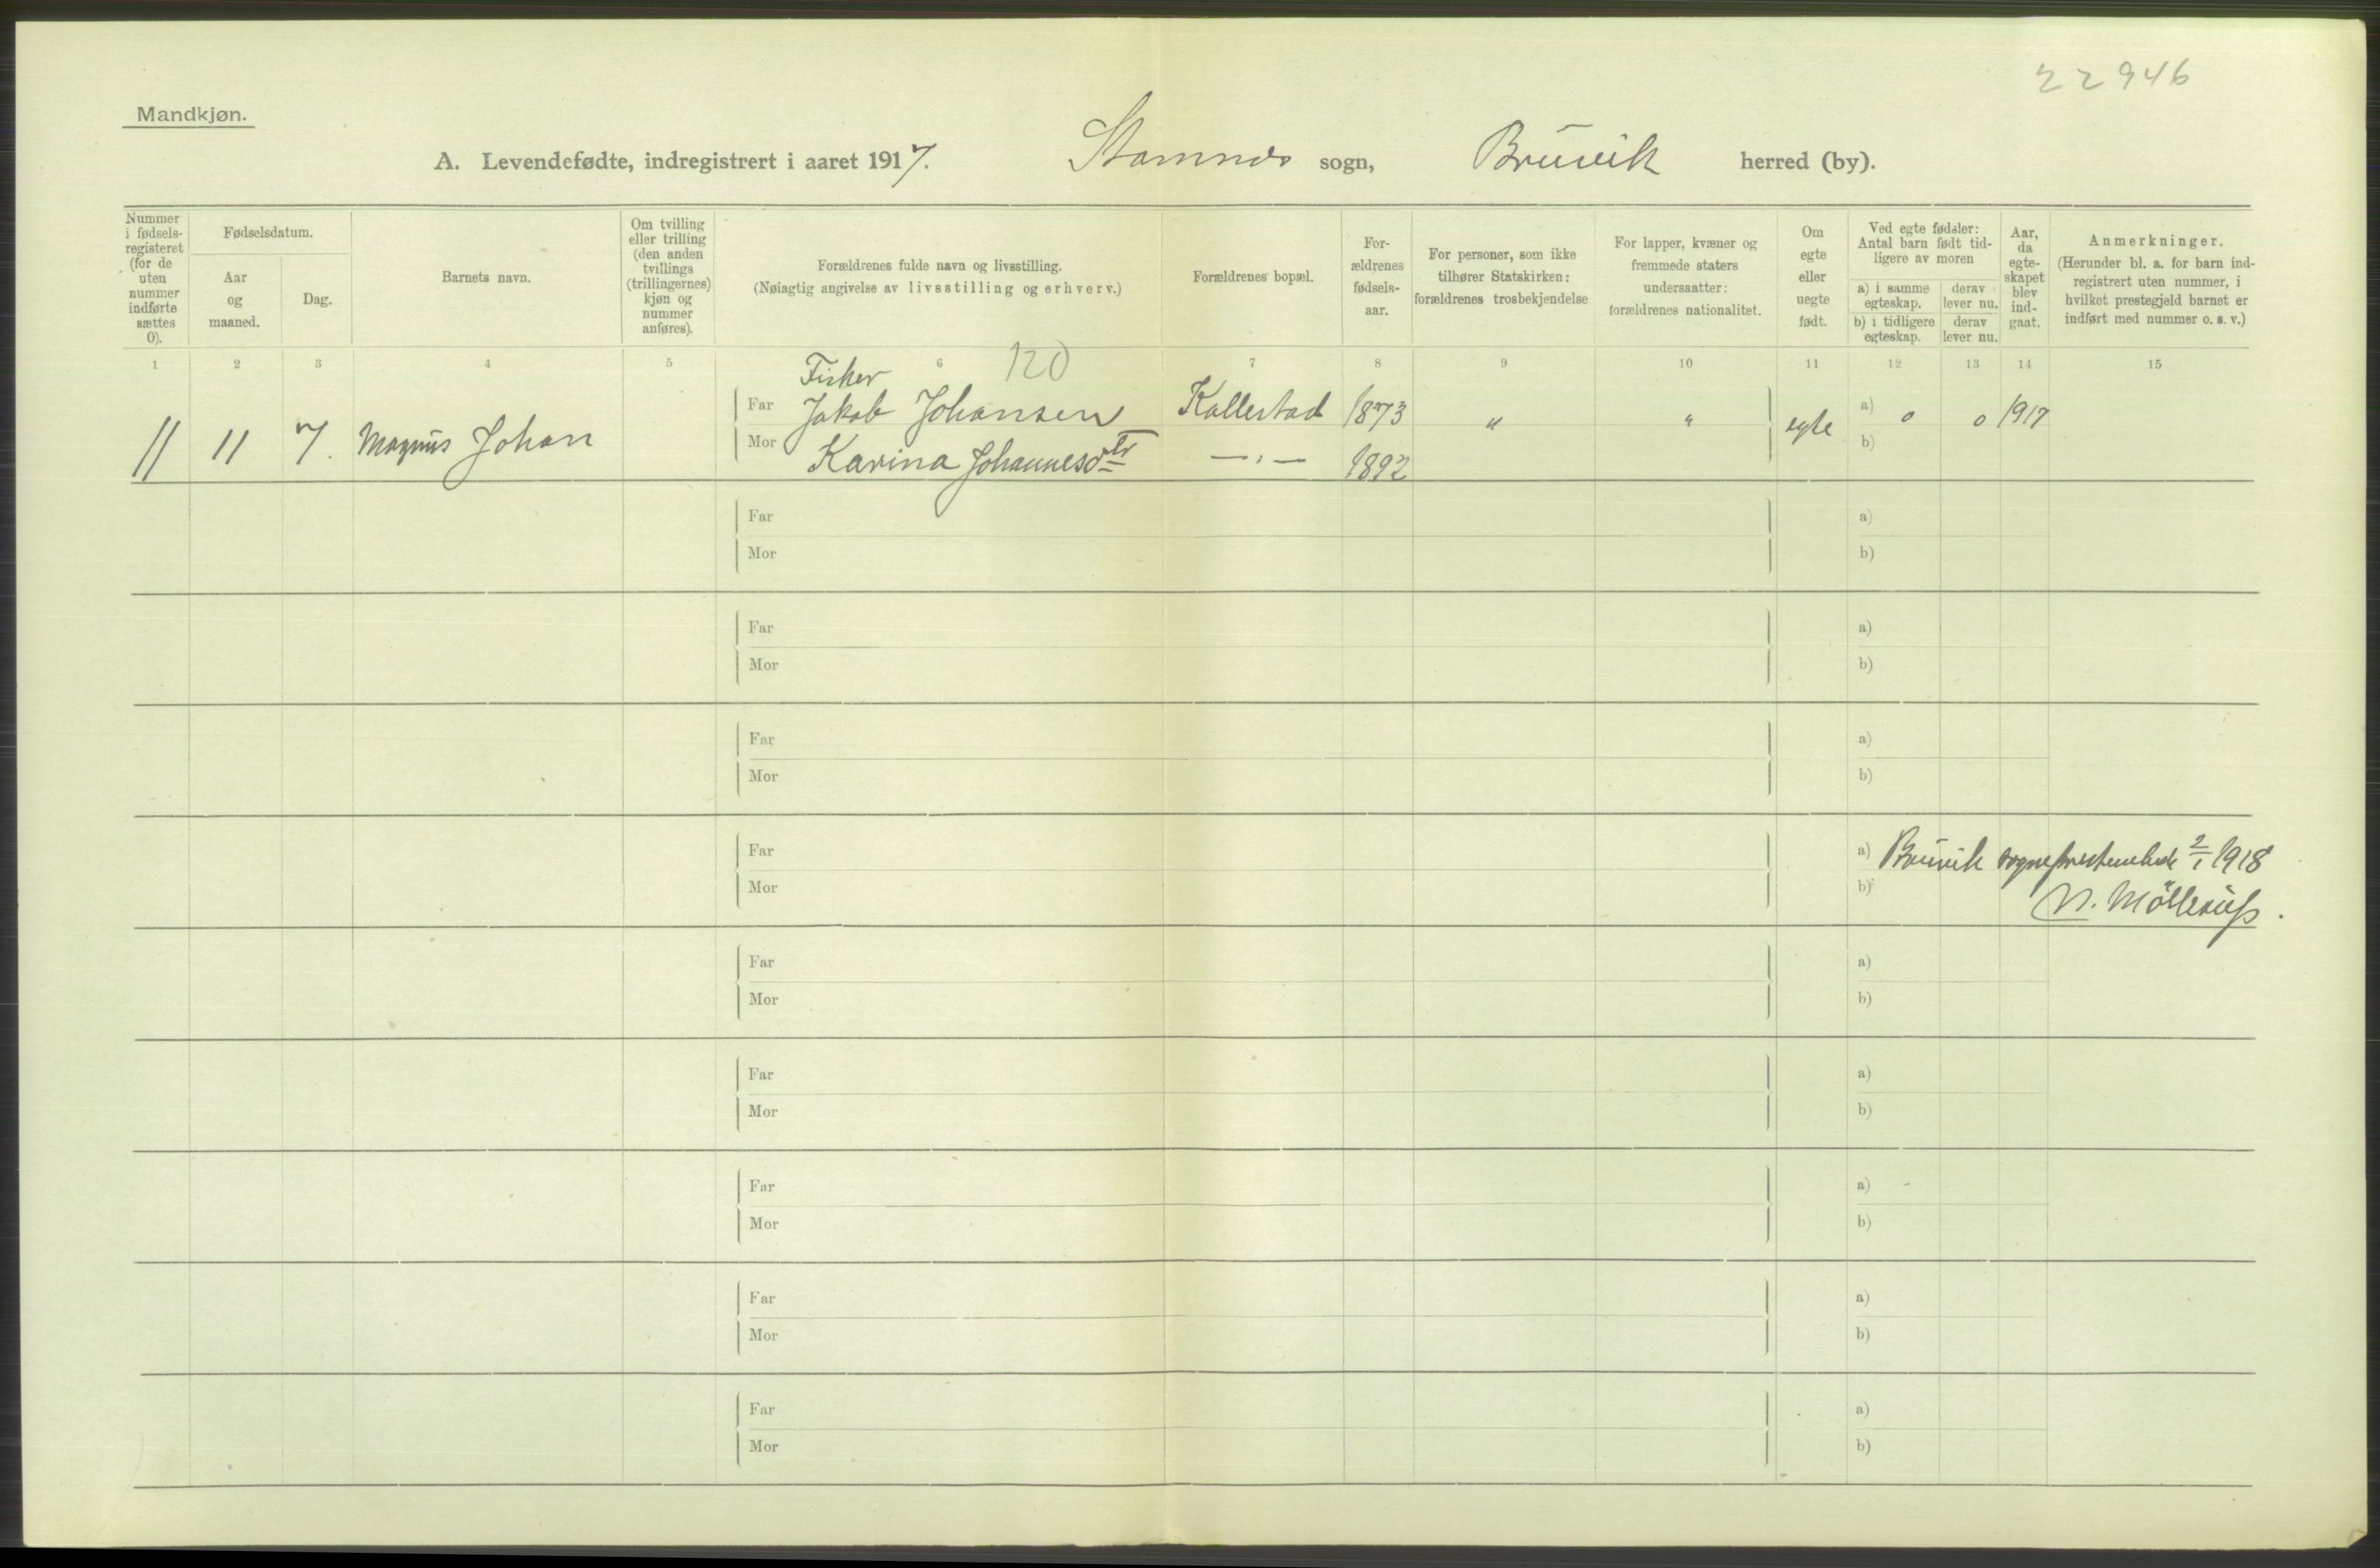 22946
Mandkjøn.
A. Levendefødte, indregistrert i aaret 1917. Stamnes sogn, Bruvik herred (by).
Nummer i fødsels-registeret (for de uten nummer indførte sættes 0).
Fødselsdatum.
Aar og maaned.
Dag.
Barnets navn.
Om tvilling eller trilling (den anden tvillings (trillingernes) kjøn og nummer anføres).
Forældrenes fulde navn og livsstilling.
(Nøiagtig angivelse av livsstilling og erhverv.)
Forældrenes bopæl.
For-ældrenes fødsels-aar.
For personer, som ikke tilhører Statskirken: forældrenes trosbekjendelse.
For lapper, kvæner og fremmede staters undersaatter: forældrenes nationalitet.
Om egte eller uegte født.
Ved egte fødsler: Antal barn født tid-ligere av moren
a) i samme egteskap.
derav lever nu.
b) i tidligere egteskap.
derav lever nu.
Aar, da egte-skapet blev ind-gaat.
Anmerkninger.
(Herunder bl. a. for barn ind-registrert uten nummer, i hvilket prestegjeld barnet er indført med nummer o. s. v.)
1 2 3 4 5 6 7 8 9 10 11 12 13 14 15
120
Fisker
11 11 7. Magnus Johan Far Jakob Johansen Kallestad 1873 " " egte a) 0 0 1917
Mor Karina Johannesdtr — " — 1892 b)
Far a)
Mor b)
Far a)
Mor b)
Far a)
Mor b)
Far a) Bruvik sogneprestembede 2/1 1918
Mor b) N. Möllerup.
Far a)
Mor b)
Far a)
Mor b)
Far a)
Mor b)
Far a)
Mor b)
Far a)
Mor b)